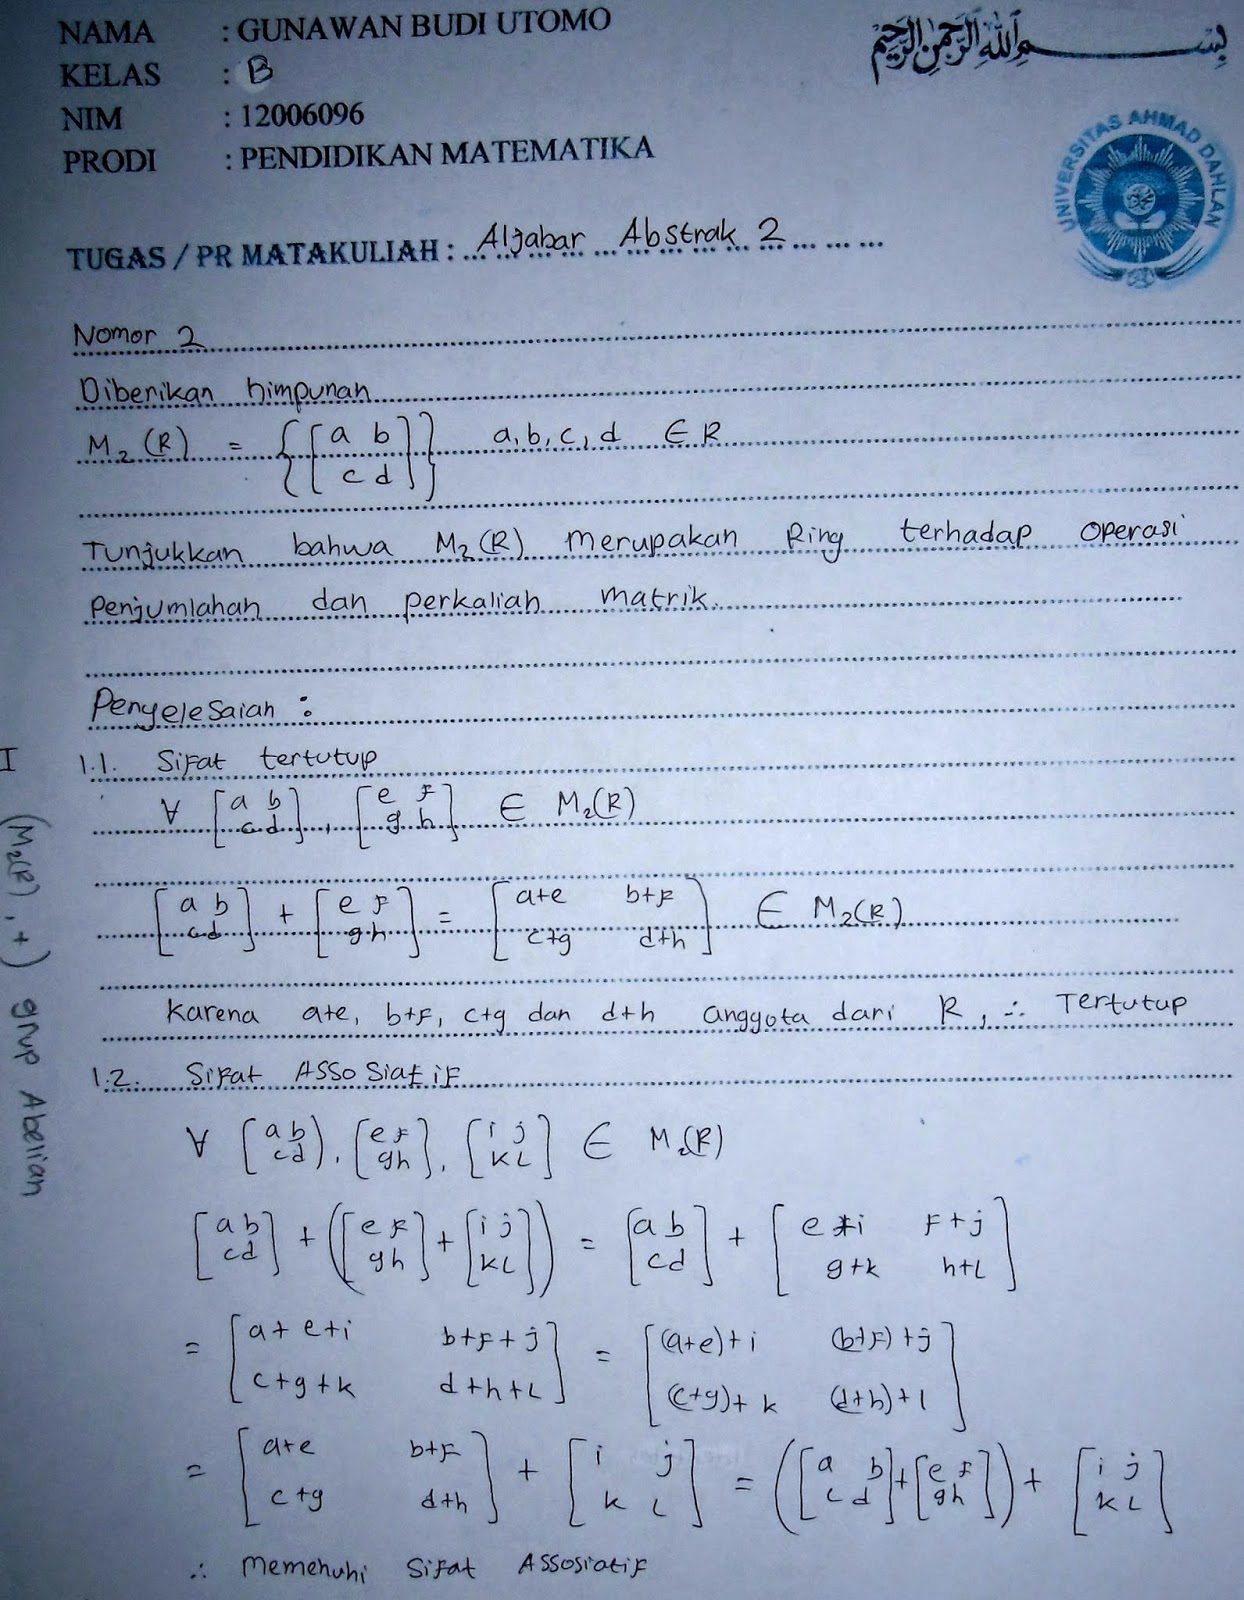 NAMA : GUNAWAN BUDI UTOMO
KELAS : B
NIM : 12006096
PRODI : PENDIDIKAN MATEMATIKA
بِسْمِ اللهِ الرَّحْمٰنِ الرَّحِيْمِ
UNIVERSITAS AHMAD DAHLAN
TUGAS / PR MATAKULIAH : Aljabar Abstrak 2
Nomor 2
Diberikan himpunan
M₂(R) = {[a b; c d]} a, b, c, d ∈ R
Tunjukkan bahwa M₂(R) merupakan Ring terhadap operasi
Penjumlahan dan perkalian matrik.
Penyelesaian :
I (M₂(R), +) grup Abelian
1.1. Sifat tertutup
∀ [a b; c d], [e f; g h] ∈ M₂(R)
[a b; c d] + [e f; g h] = [a+e b+f; c+g d+h] ∈ M₂(R)
Karena a+e, b+f, c+g dan d+h anggota dari R, ∴ Tertutup
1.2. Sifat Assosiatif
∀ [a b; c d], [e f; g h], [i j; k l] ∈ M₂(R)
[a b; c d] + ([e f; g h] + [i j; k l]) = [a b; c d] + [e+i f+j; g+k h+l]
= [a+e+i b+f+j; c+g+k d+h+l] = [(a+e)+i (b+f)+j; (c+g)+k (d+h)+l]
= [a+e b+f; c+g d+h] + [i j; k l] = ([a b; c d] + [e f; g h]) + [i j; k l]
∴ Memenuhi Sifat Assosiatif